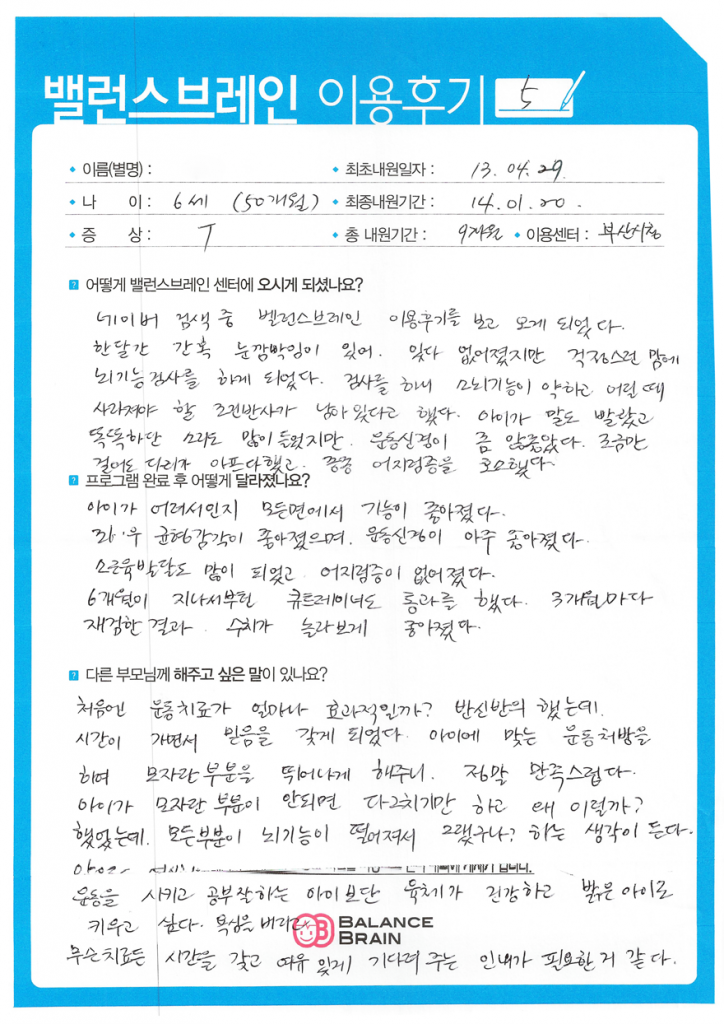 밸런스브레인 이용후기 5
이름(별명) : 최초내원일자 : 13. 04. 29.
나 이 : 6세 (50개월) 최종내원기간 : 14. 01. 20.
증 상 : T 총 내원기간 : 9개월 이용센터 : 부산시청
어떻게 밸런스브레인 센터에 오시게 되셨나요?
네이버 검색 중 벨런스브레인 이용후기를 보고 오게 되었다.
한달간 간혹 눈깜박임이 있어. 있다 없어졌지만 걱정스런 맘에
뇌기능검사를 하게 되었다. 검사를 하니 소뇌기능이 약하고 어릴때
사라져야 할 조건반사가 남아있다고 했다. 아이가 말도 빨랐고
똑똑하단 소리도 많이 들렸지만. 운동신경이 좀 않좋았다. 조금만
걸어도 다리가 아프다했고. 종종 어지럼증을 호소했다.
프로그램 완료 후 어떻게 달라졌나요?
아이가 어려서인지 모든면에서 기능이 좋아졌다.
좌·우 균형감각이 좋아졌으며. 운동신경이 아주 좋아졌다.
소근육발달도 많이 되었고. 어지럼증이 없어졌다.
6개월이 지나서부턴 큐트레이너도 통과를 했다. 3개월마다
재검한 결과. 수치가 놀라보게 좋아졌다.
다른 부모님께 해주고 싶은 말이 있나요?
처음엔 운동치료가 얼마나 효과적일까? 반신반의 했는데.
시간이 가면서 믿음을 갖게 되었다. 아이에 맞는 운동처방을
하며 모자란 부분을 뛰어나게 해주니. 정말 만족스럽다.
아이가 모자란 부분이 안되면 다그치기만 하고 왜 이럴까?
했었는데. 모든부분이 뇌기능이 떨어져서 그랬구나? 하는 생각이 든다.
운동을 시키고 공부잘하는 아이보단 육체가 건강하고 밝은아이로
키우고 싶다. 욕심을 버리고
BALANCE
BRAIN
무슨치료든 시간을 갖고 여유 있게 기다려 주는 인내가 필요한거 같다.